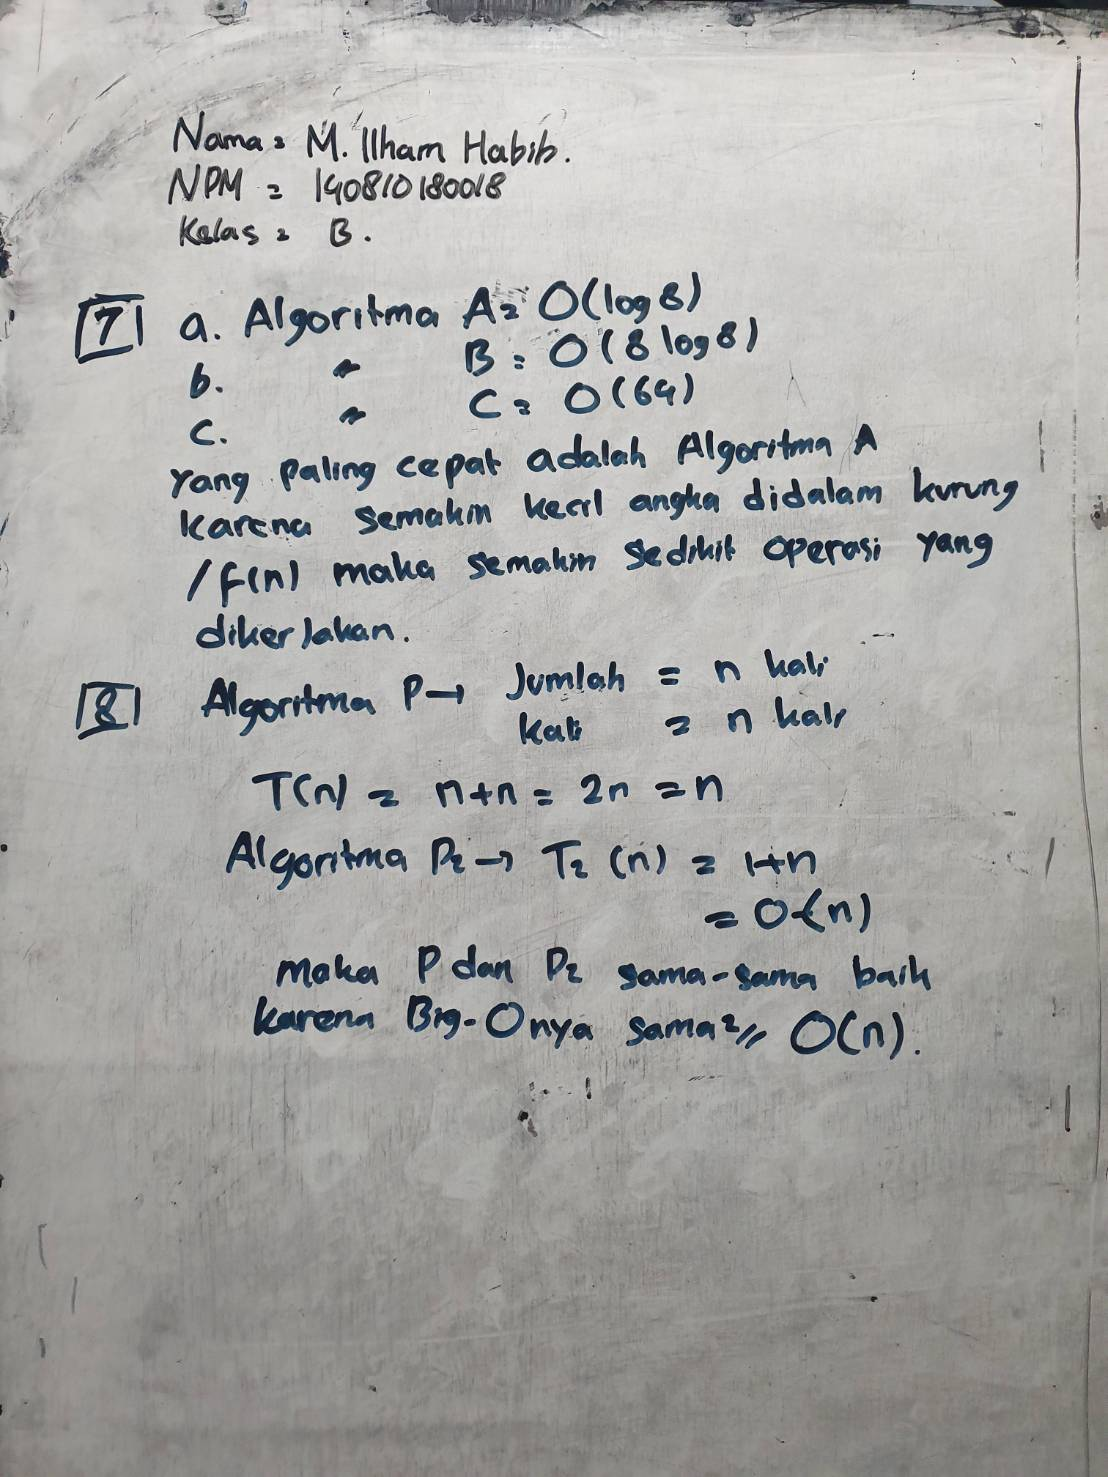 Nama = M. Ilham Habib.
NPM = 140810180018
Kelas = B.
7 a. Algoritma A = O(log 8)
b. " B = O(8 log 8)
c. " C = O(64)
Yang paling cepat adalah Algoritma A
karena semakin kecil angka didalam kurung
/f(n) maka semakin sedikit operasi yang
dikerjakan.
8 Algoritma P → Jumlah = n kali
kali = n kali
T(n) = n+n = 2n = n
Algoritma P2 → T2 (n) = 1+n
= O(n)
maka P dan P2 sama-sama baik
karena Big-O nya sama² // O(n).